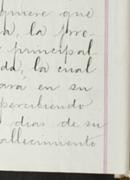 quiere que
h, la pre-
principal
dd, la cual
ará en su
percibiendo
dias de su
allecimiento